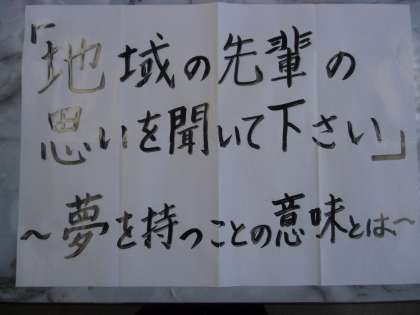 「地域の先輩の
思いを聞いて下さい」
～夢を持つことの意味とは、～